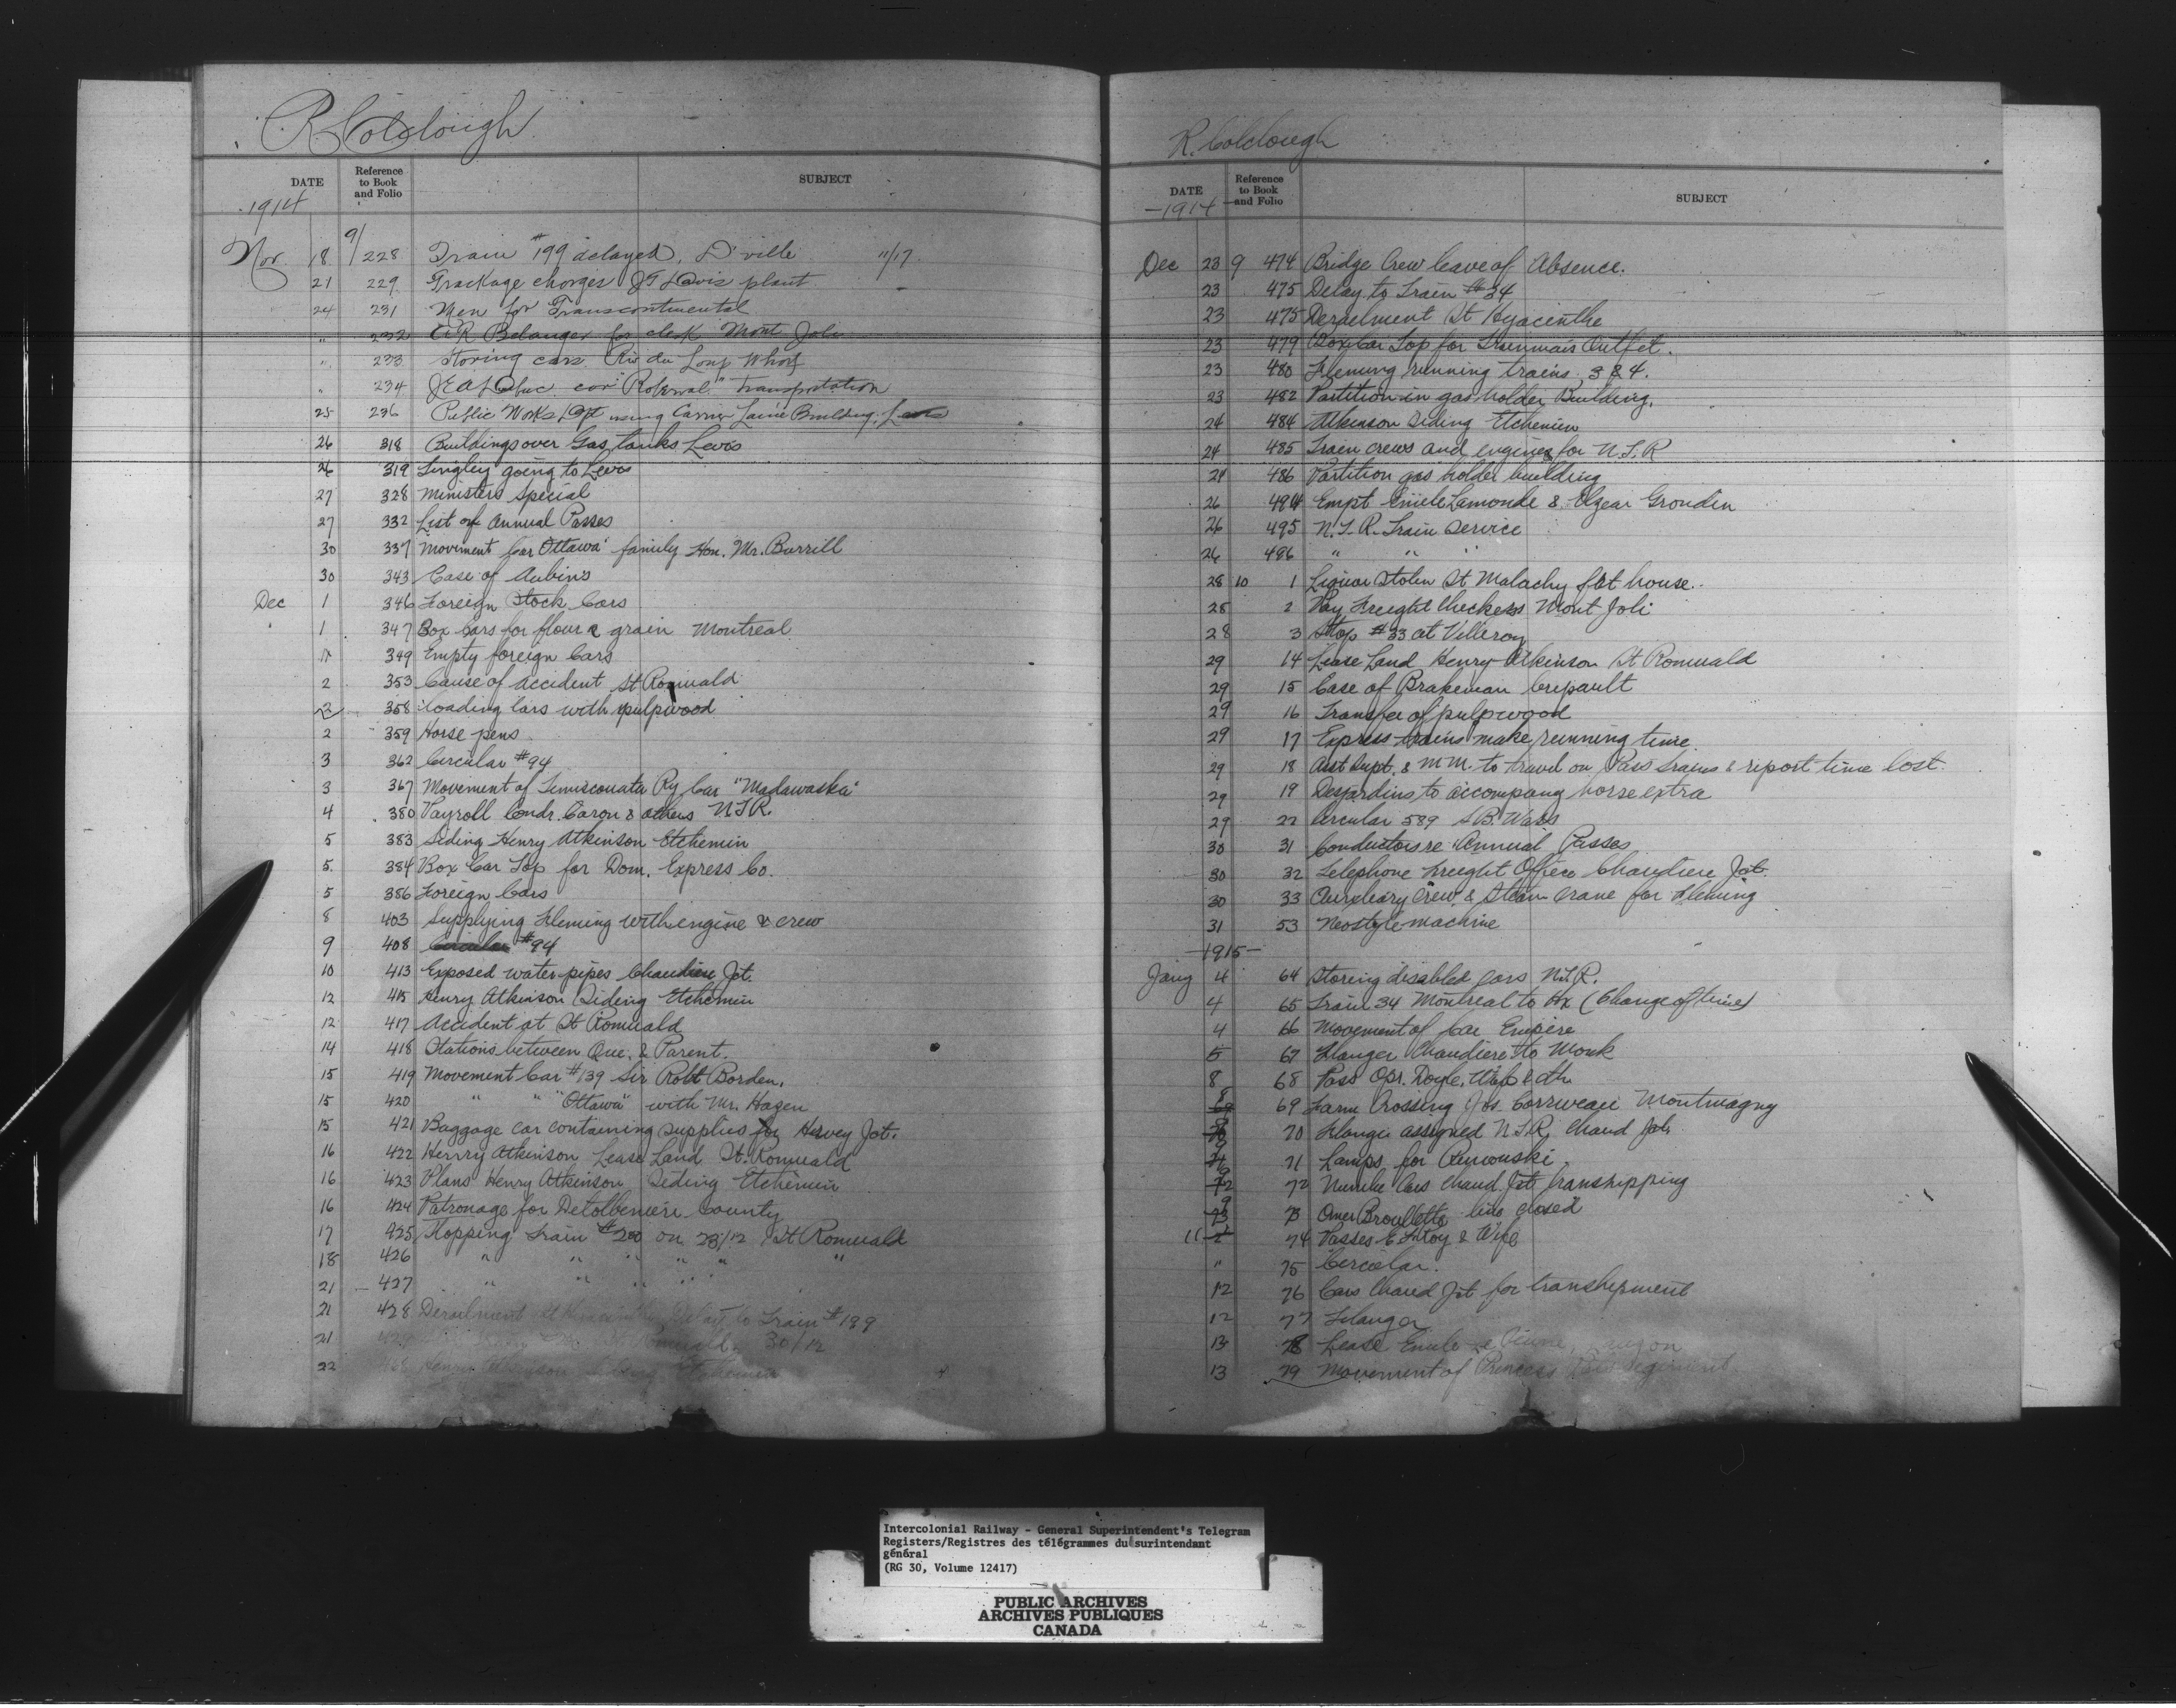 R Colclough
DATE Reference to Book and Folio SUBJECT
1914
Nov 18 9/228 Train #199 delayed, D'ville 11/17
21 229 Trackage charges J T Davis plant
24 231 Men for Transcontinental
" 232 Belanger for clerk Mont Joli
" 233 Storing cars Riv du Loup Wharf
" 234 car "Roberval" transportation
25 236 Public Works Dpt using Carrier Laine Building, Levis
26 318 Buildings over Gas tanks Levis
26 319 Lingley going to Levis
27 328 Ministers Special
27 332 List of Annual Passes
30 337 Movement Car "Ottawa" family Hon. Mr. Burrill
30 343 Case of Aubin's
Dec 1 346 Foreign Stock Cars
1 347 Box Cars for flour & grain Montreal
1 349 Empty foreign Cars
2 353 Cause of accident St Romuald
2 358 Loading Cars with pulpwood
2 359 Horse pens
3 362 Circular #94
3 367 Movement of Temiscouata Ry Car "Madawaska"
4 380 Payroll Condr. Caron & others N.T.R.
5 383 Siding Henry Atkinson Etchemin
5 384 Box Car Top for Dom. Express Co.
5 386 Foreign Cars
8 403 Supplying Fleming with engine & crew
9 408 Circular #94
10 413 Exposed water pipes Chaudiere Jct.
12 415 Henry Atkinson Siding Etchemin
12 417 Accident at St Romuald
14 418 Stations between Que. & Parent.
15 419 Movement Car #139 Sir Robt Borden.
15 420 " " "Ottawa" with Mr. Hazen
15 421 Baggage car containing supplies for Hervey Jct.
16 422 Henry Atkinson Lease Land St. Romuald
16 423 Plans Henry Atkinson Siding Etchemin
16 424 Patronage for County
17 425 Stopping Train #200 on 23/12 St Romuald
18 426 " " " " " "
21 427 " " " "
21 428 Derailment Delay to Train #199
21 30/12
22 Henry Atkinson Siding Etchemin
R. Colclough
DATE Reference to Book and Folio SUBJECT
1914
Dec 23 9 474 Bridge Crew leave of Absence.
23 475 Delay to Train #34
23 475 Deraelment St Hyacinthe
23 479 Box Car Top for Outfit.
23 480 Fleming running trains 3 & 4.
23 482 Partition in gas holder Building.
24 484 Atkinson Siding Etchemin
24 485 Train crews and engines for N.T.R
24 486 Partition gas holder building
26 494 Empt Emile Lamonde & Elzear Grondin
26 495 N.T.R. Train Service
26 496 " " "
28 10 1 Liquor stolen St Malachy frt house.
28 2 Pay Freight Checkers Mont Joli
28 3 Stop #33 at Villeroy
29 14 Lease Land Henry Atkinson St Romuald
29 15 Case of Brakeman Crepault
29 16 Transfer of pulpwood
29 17 Express trains make running time.
29 18 Asst Supt. & M M. to travel on Pass trains & report time lost.
29 19 Desjardins to accompany horse extra
29 22 Circular 589 S.B. Wass
30 31 Conductors re Annual Passes
30 32 Telephone Freight Office Chaudiere Jct.
30 33 Auxileary Crew & Steam Crane for Fleming
31 53 Neostyle machine
1915
Jany 4 64 Storing disabled cars N.T.R.
4 65 Train 34 Montreal to Hx (Change of time)
4 66 Movement of Car Empire
5 67 Flanger Chaudiere to Monk
8 68 Pass Opr. Doyle, Wife & ch.
8 69 Farm Crossing Jos. Corriveau Montmagny
9 70 Flanger assigned N.T.R. Chaud Jct.
9 71 Lamps for Rimouski
9 72 Number Cars Chaud. Jct. Transhipping
9 73 Omer Broullette closed
11 74 Passes & Wife
" 75 Circular.
12 76 Cars Chaud Jct for transhipment
12 77 Flanger
13 78 Lease Emile
13 79 Movement of Princess
Intercolonial Railway - General Superintendent's Telegram
Registers/Registres des télégrammes du surintendant
général
(RG 30, Volume 12417)
PUBLIC ARCHIVES
ARCHIVES PUBLIQUES
CANADA